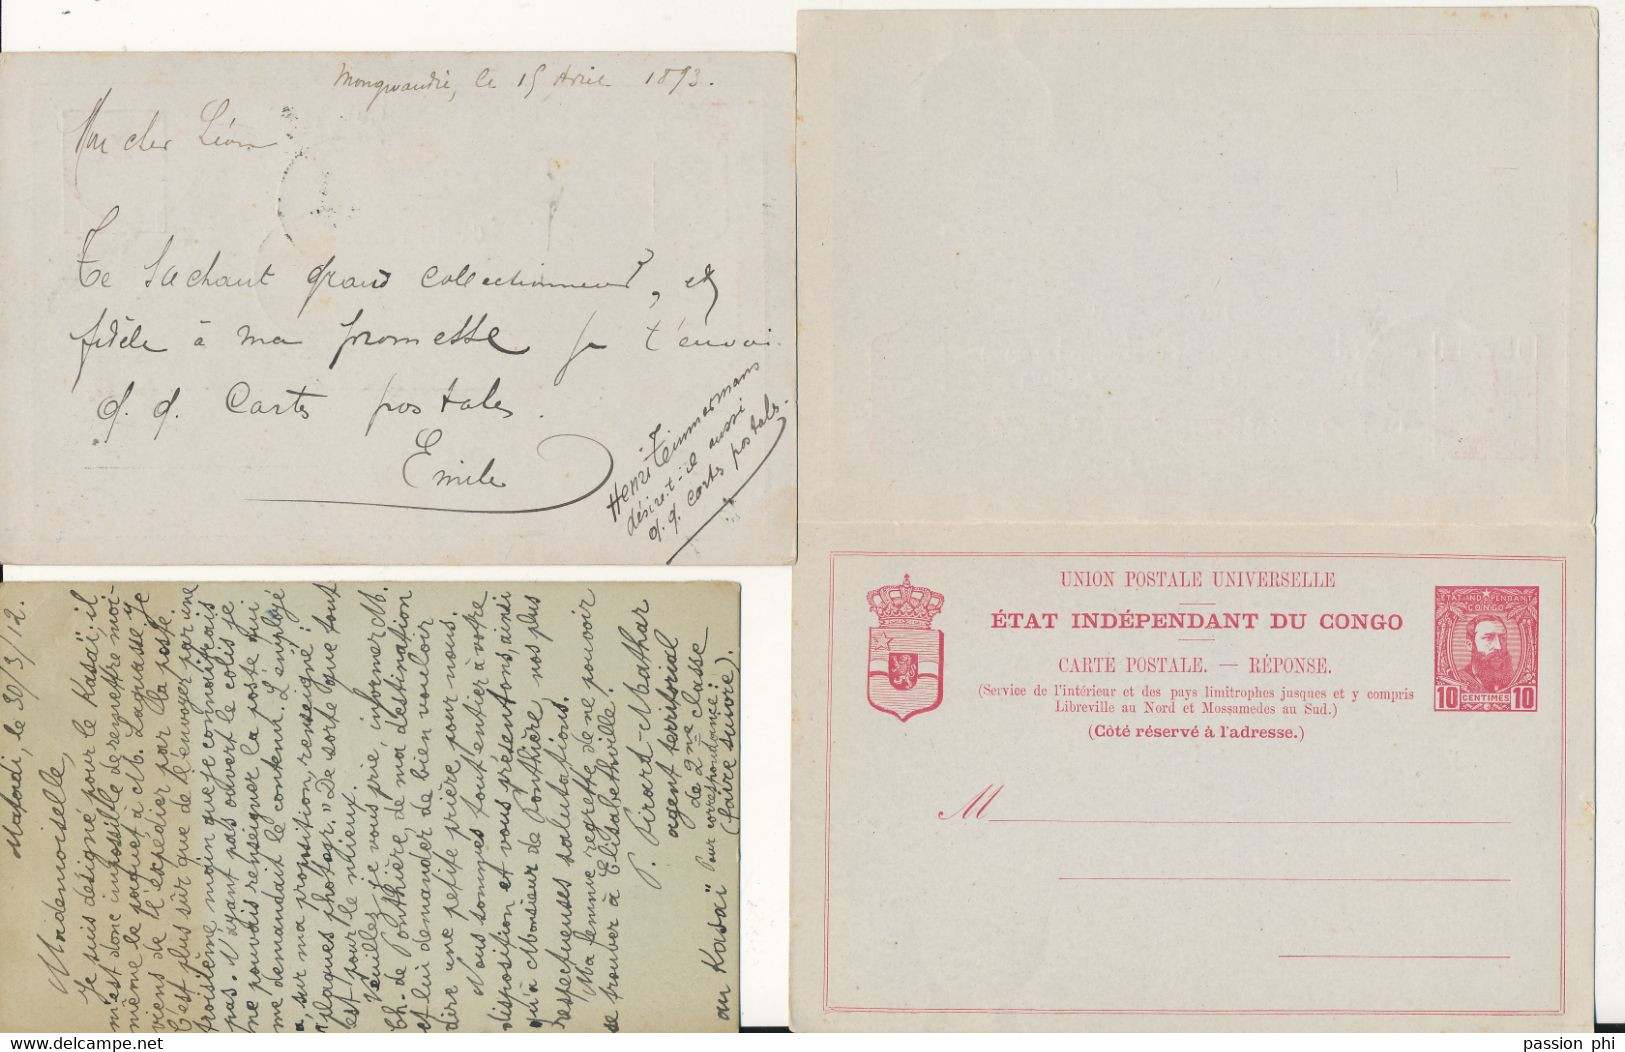 Mongwandie, le 15 Avril 1893.
Mon cher Léon
Te sachant grand collectionneur, et
fidèle à ma promesse je t'envoi
q. q. Cartes postales.
Emile
Henri Timmermans
désire-t-il aussi
q. q. cartes postales.
Matadi, le 30/3/12.
Mademoiselle,
Je suis désigné pour le Kasaï, il
m'est donc impossible de remettre moi-
même le paquet à Mb. Laguasse je
viens de l'expédier par la poste.
C'est plus sûr que de l'envoyer par une
troisième main que je connaîtrais
pas. N'ayant pas ouvert le colis je
ne pouvais renseigner la poste qui
me demandait le contenu. L'employé
a, sur ma proposition, renseigné
"plaques photogr." De sorte que tout
est pour le mieux.
Veuillez je vous prie, informer Mb.
Ch. de Ponthière, de ma destination
et lui demander de bien vouloir
dire une petite prière pour nous.
Nous sommes tout entier à votre
disposition et vous présentons, ainsi
qu'à Monsieur de Ponthière nos plus
respectueuses salutations.
Ma femme regrette de ne pouvoir
se trouver à Elisabethville.
P. Pirard-Mathar
agent territorial
de 2me classe
Pour correspondance:
au Kasaï (faire suivre).
UNION POSTALE UNIVERSELLE
ÉTAT INDÉPENDANT DU CONGO
CARTE POSTALE. — RÉPONSE.
(Service de l'intérieur et des pays limitrophes jusques et y compris
Libreville au Nord et Mossamedes au Sud.)
(Côté réservé à l'adresse.)
ETAT INDÉPENDANT
CONGO
10 CENTIMES 10
M
passion phi